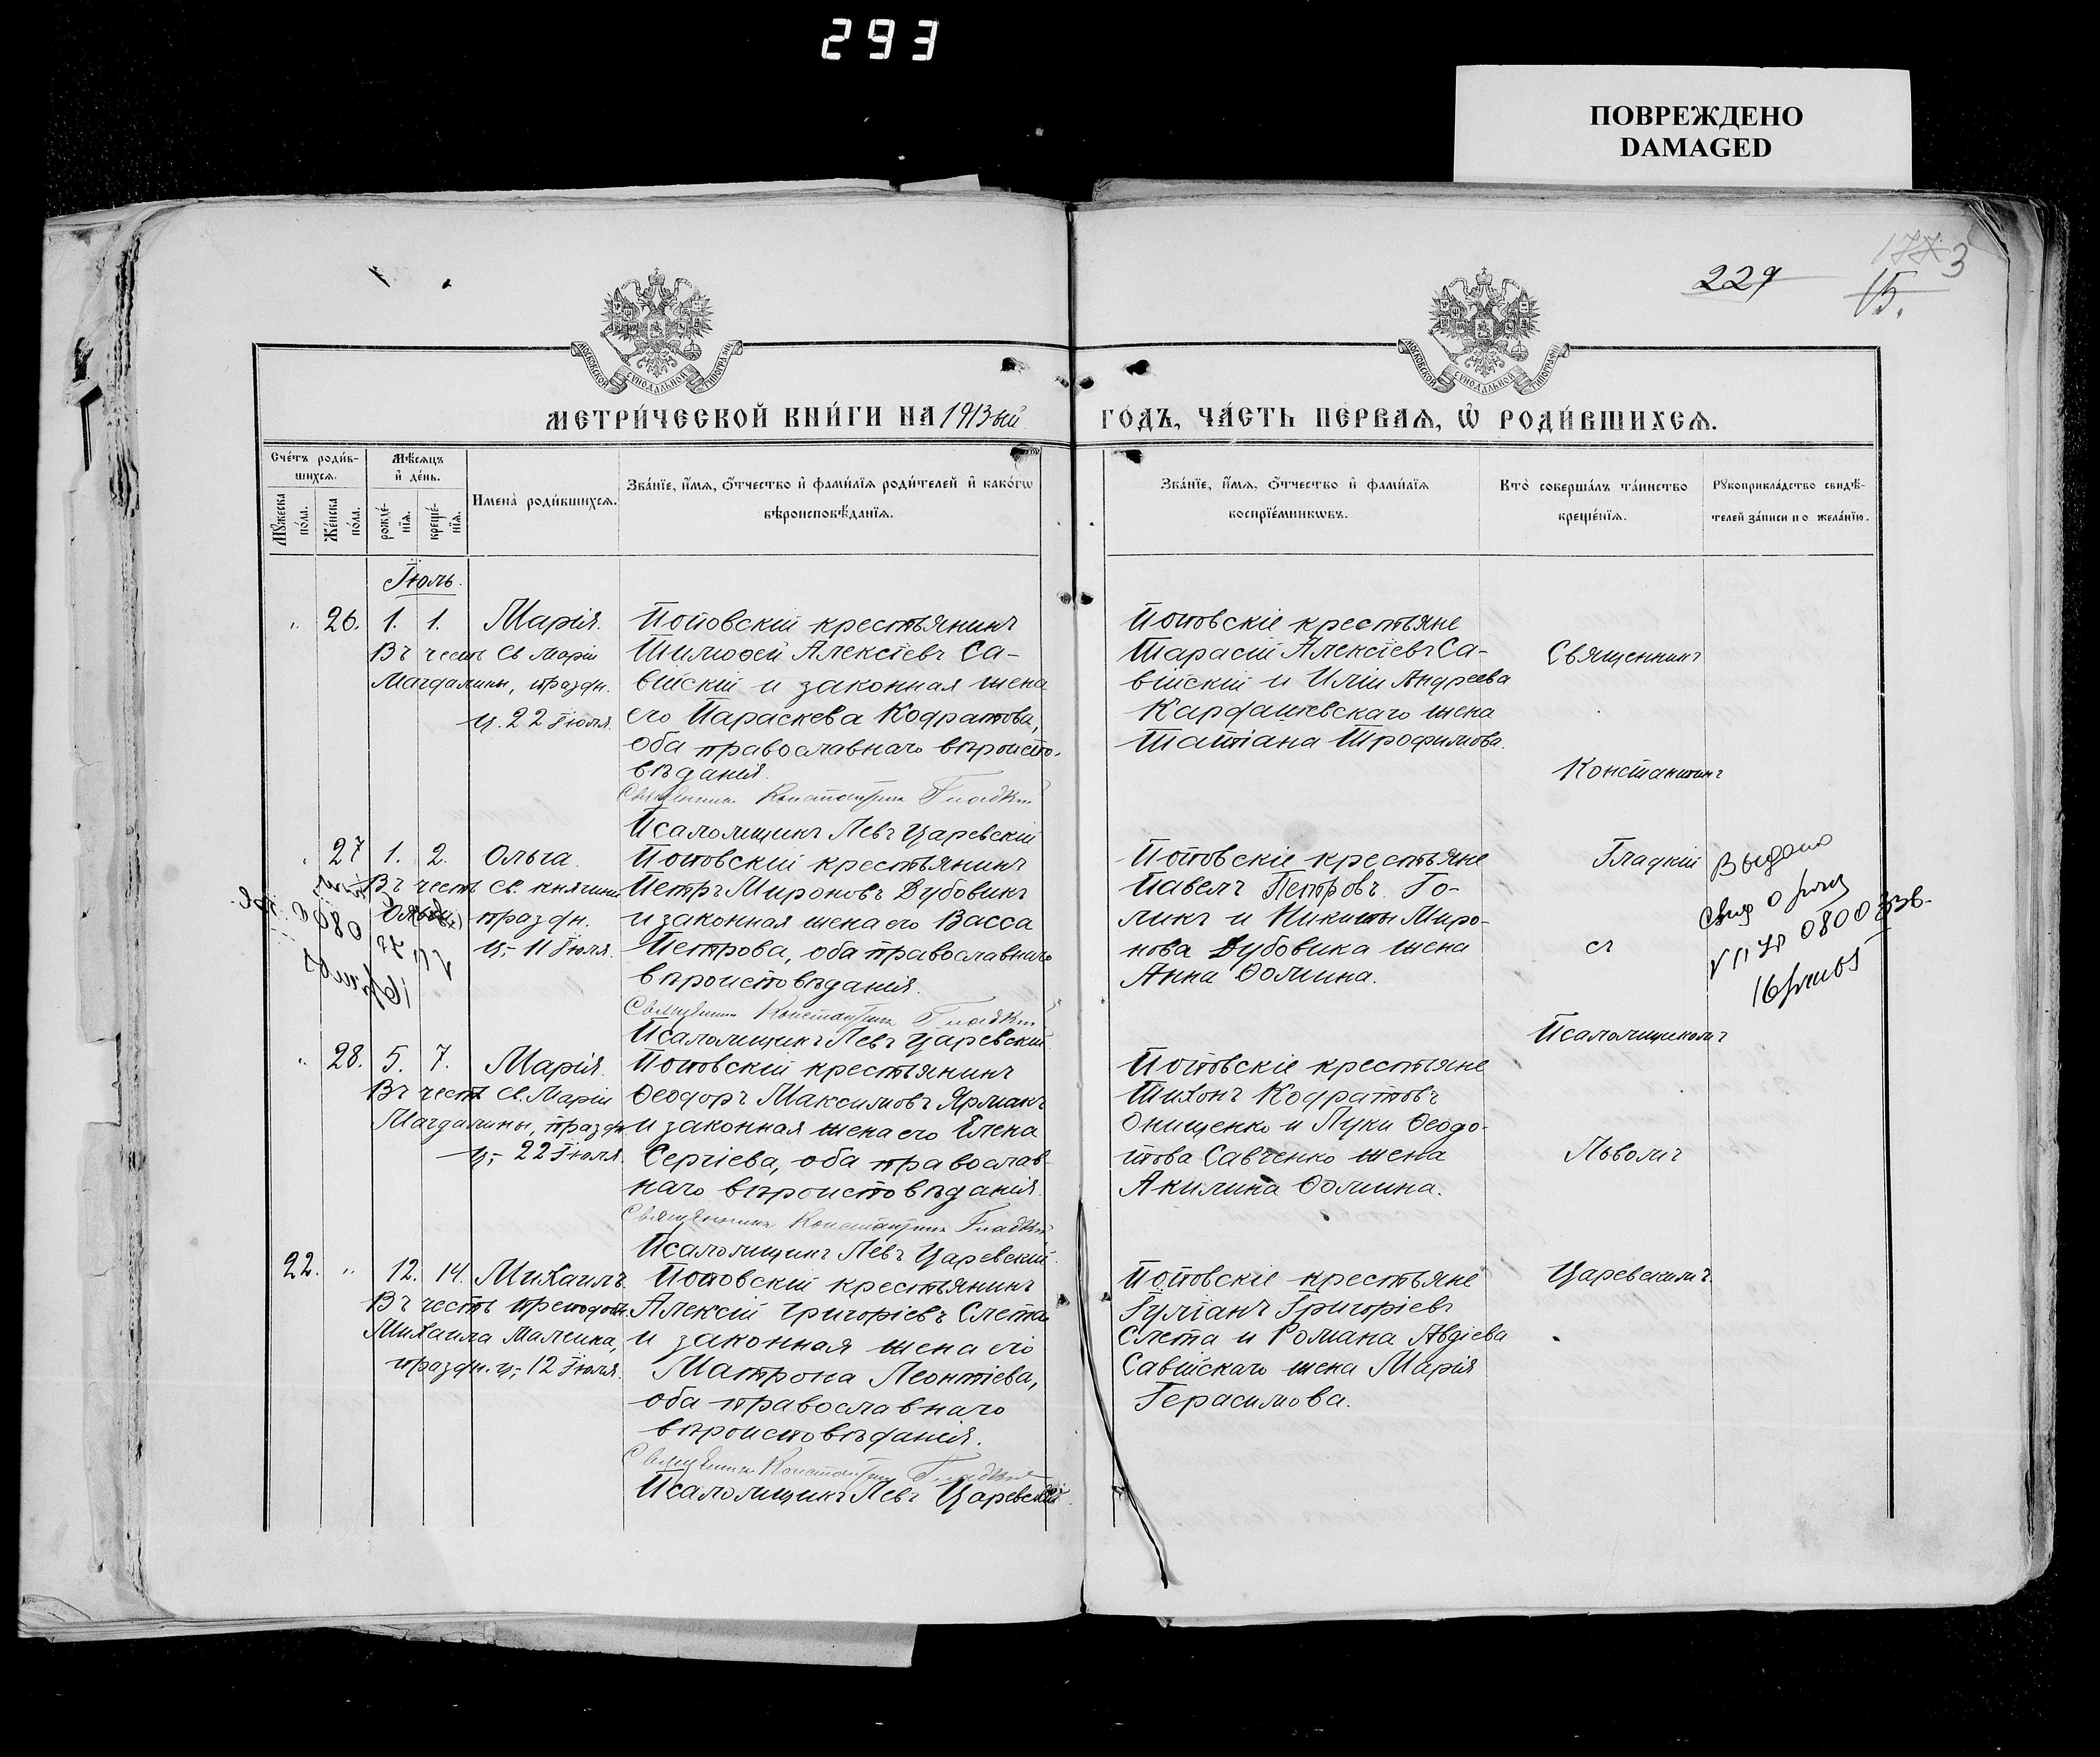 293
ПОВРЕЖДЕНО
DAMAGED
177 3
229
15.
МОСКОВСКОЙ СѴНОДАЛЬНОЙ ТИПОГРАФІИ
МОСКОВСКОЙ СѴНОДАЛЬНОЙ ТИПОГРАФІИ
МЕТРИ́ЧЕСКОЙ КНИ́ГИ НА 1913ый
ГО́ДЪ, ЧА́СТЬ ПЕ́РВАѦ, Ѡ҆ РОДИ́ВШИХСѦ.
Сче́тъ роди́в-
шихсѧ.
Мꙋ́жеска
по́ла.
Же́нска
по́ла.
Мѣ́сѧцъ
и҆ де́нь.
рожде́-
нїѧ.
креще́-
нїѧ.
Имена̀ роди́вшихсѧ.
Зва́нїе, и҆́мѧ, ѻ҆́тчество и҆ фами́лїѧ роди́телей и҆ како́гѡ
вѣроисповѣ́данїѧ.
Зва́нїе, и҆́мѧ, ѻ҆́тчество и҆ фами́лїѧ
воспрїе́мникѡвъ.
Кто̀ соверша́лъ та́инство
креще́нїѧ.
Рꙋкоприкла́дство свидѣ́-
телей за́писи по жела́нїю.
Іюль.
" 26. 1. 1. Марія.
Въ честь Св Маріи
Магдалины, праздн.
ц. 22 Іюля.
Поповскій крестьянинъ
Тимоѳей Алексіевъ Са-
війскій и законная жена
его Параскева Кодратова,
оба православнаго вѣроиспо-
вѣданія.
Священникъ Константинъ Гладкій
Псаломщикъ Левъ Царевскій
Поповскіе крестьяне
Тарасій Алексіевъ Са-
війскій и Иліи Андреева
Кардашевскаго жена
Татіана Трофимова.
Священникъ
Константинъ
" 27 1. 2. Ольга.
Въ честь св. княгини
Ольги, праздн.
ц. 11 Іюля.
Поповскій крестьянинъ
Петръ Мироновъ Дубовикъ
и законная жена его Васса
Петрова, оба православнаго
вѣроисповѣданія.
Священникъ Константинъ Гладкій
Псаломщикъ Левъ Царевскій
Поповскіе крестьяне
Павелъ Петровъ Го-
ликъ и Никиты Миро-
нова Дубовика жена
Анна Ѳомина.
Гладкій
съ
Псаломщикомъ
Выдано
свид о рожд
080033
" 28. 5. 7. Марія.
Въ честь Св. Маріи
Магдалины, праздн.
ц. 22 Іюля.
Поповскій крестьянинъ
Ѳеодоръ Максимовъ Ярмакъ
и законная жена его Елена
Сергіева, оба православ-
наго вѣроисповѣданія.
Священникъ Константинъ Гладкій
Псаломщикъ Левъ Царевскій
Поповскіе крестьяне
Тихонъ Кодратовъ
Онищенко и Луки Ѳеодо-
това Савченко жена
Акилина Ѳомина.
Львомъ
22. " 12. 14. Михаилъ.
Въ честь преподобн.
Михаила Малеина,
праздн. ц. 12 Іюля.
Поповскій крестьянинъ
Алексій Григоріевъ Слета
и законная жена его
Матрона Леонтіева,
оба православнаго
вѣроисповѣданія.
Священникъ Константинъ Гладкій
Псаломщикъ Левъ Царевскій
Поповскіе крестьяне
Іуліанъ Григоріевъ
Слета и Романа Авдіева
Савійскаго жена Марія
Герасимова.
Царевскимъ.